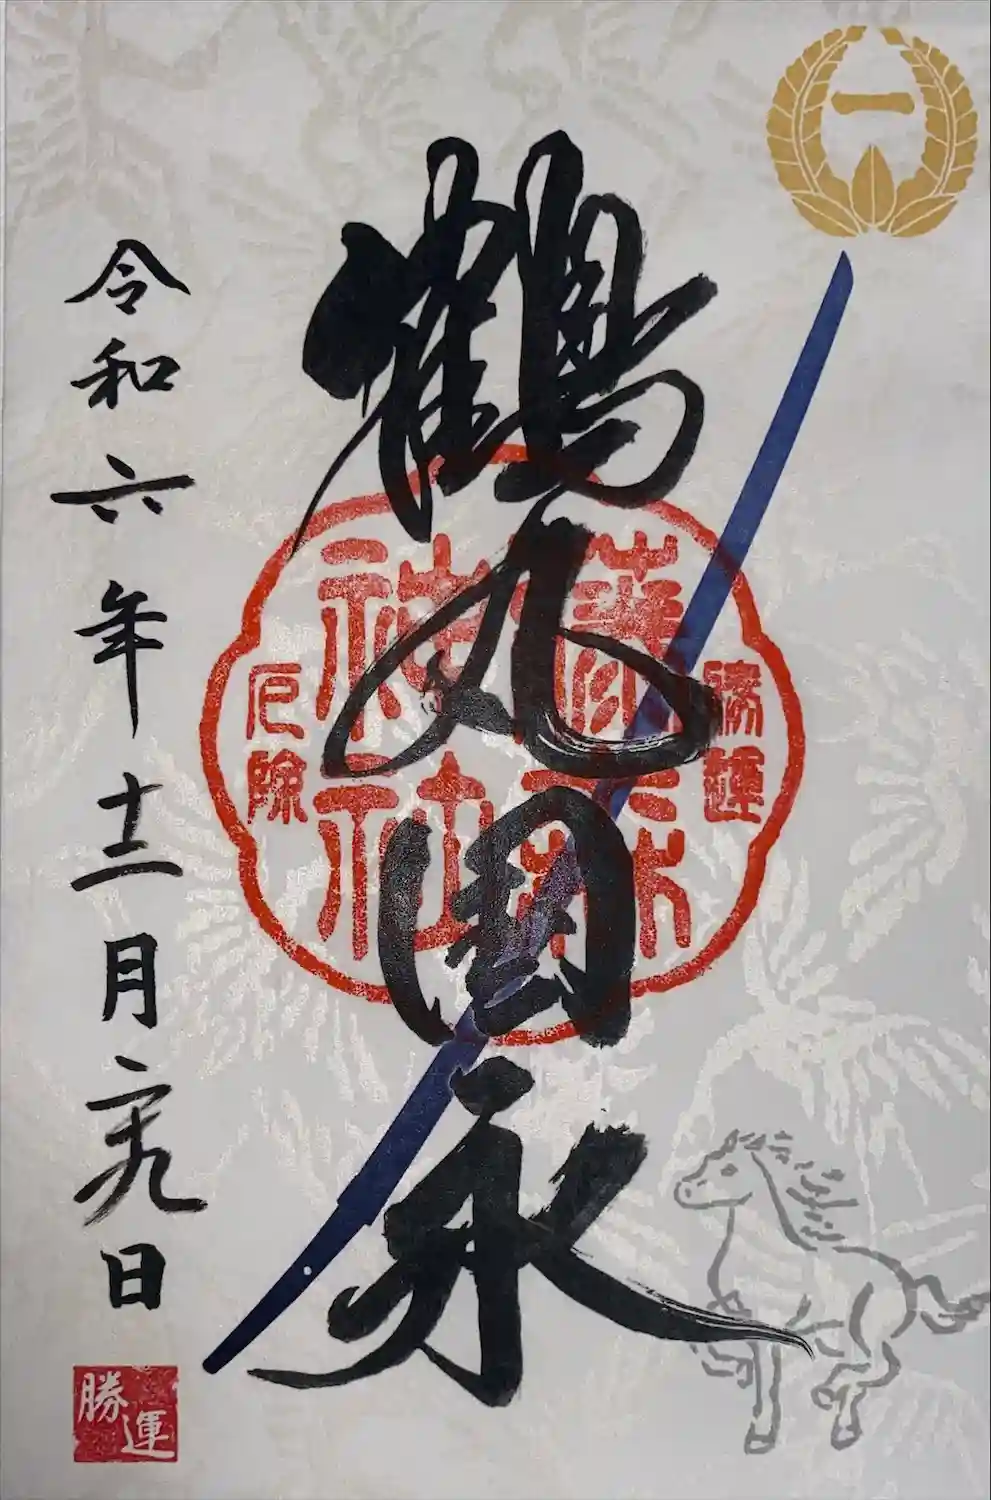 一
鶴丸國永
藤森神社
勝運
厄除
令和六年十二月二十九日
勝運